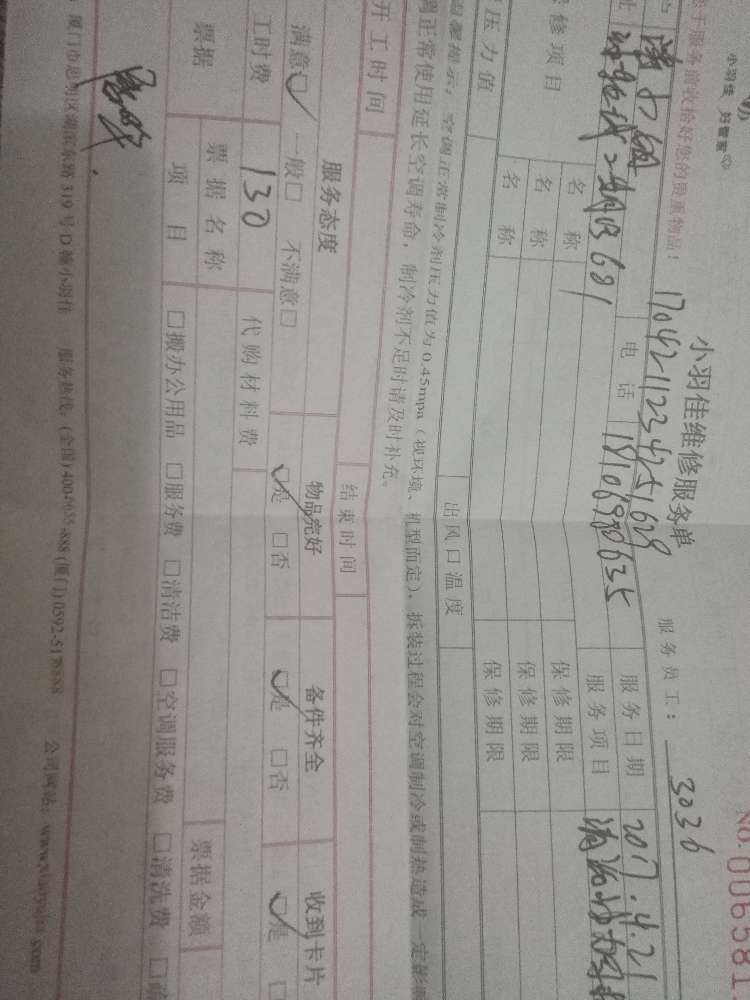 小羽佳 好管家
小羽佳维修服务单
服务员工： 3036
No. 006581
于服务前收拾好您的贵重物品： 1704211234251629
电话 18106980635 服务日期 2017.4.21
服务项目
修项目 名称 保修期限
名称 保修期限
名称 保修期限
压力值 出风口温度
提示：空调正常制冷剂压力值为 0.45mpa（视环境、机型而定）、拆装过程会对空调制冷或制热造成一定影响
调正常使用延长空调寿命，制冷剂不足时请及时补充。
开工时间 结束时间
服务态度 物品完好 备件齐全 收到卡片
满意☑ 一般□ 不满意□ ☑是 □否 ☑是 □否 ☑是 □
工时费 130 代购材料费
票据 票据名称 票据金额
项目 □搬办公用品 □服务费 □清洁费 □空调服务费 □清洗费 □
厦门市思明区湖滨东路 319 号 D 幢小羽佳 服务热线：(全国) 400-635-888 (厦门) 0592-5178888 公司网站：www.xiaoyujia.com